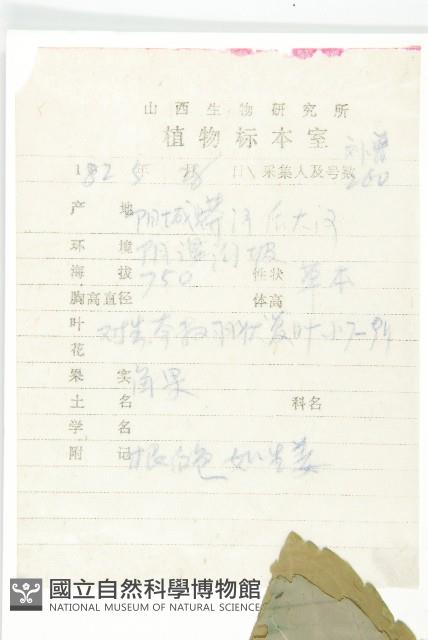 山西生物研究所
植物标本室
1982年5月 日 采集人及号数 260
产地 阳城蟒河后大河
环境 阴湿沟坡
海拔 750 性状 草本
胸高直径 体高
叶 对生 羽状 叶
花
果实 角果
土名 科名
学名
附记 根白色如生姜
國立自然科學博物館
NATIONAL MUSEUM OF NATURAL SCIENCE